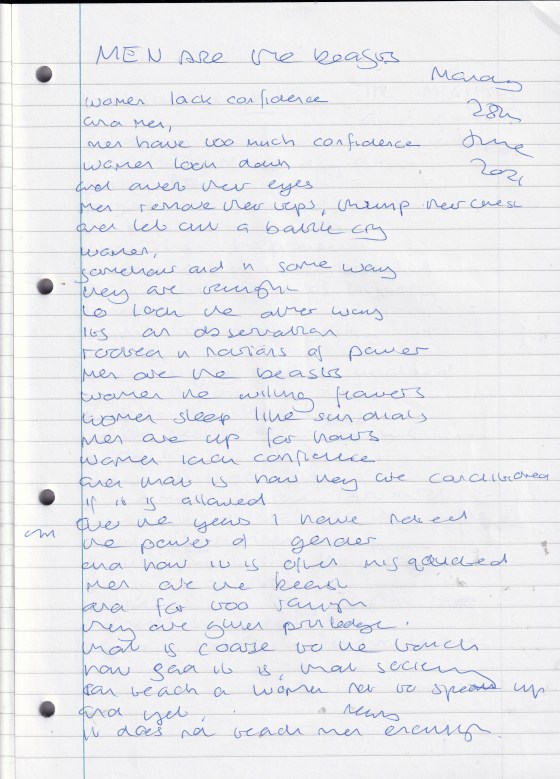 MEN Are the beasts
Monday
28th
June
2021
women lack confidence
and men,
men have too much confidence
women look down
and avert their eyes
Men remove their tops, thump their chest
and let out a battle cry
women,
somehow and in some way
they are taught
to look the other way
its an observation
rooted in notions of power
Men are the beasts
women the wilting flowers
women sleep like sun dials
Men are up for hours
women lack confidence
and that is how they are conditioned
if it is allowed
over the years I have noticed
the power of gender
and how it is often misguided
Men are the beast
and far too
they are given priviledge.
that is coarse to the touch
how sad it is, that society
can teach a women not to speak up
and yet,
it does not teach men enough.